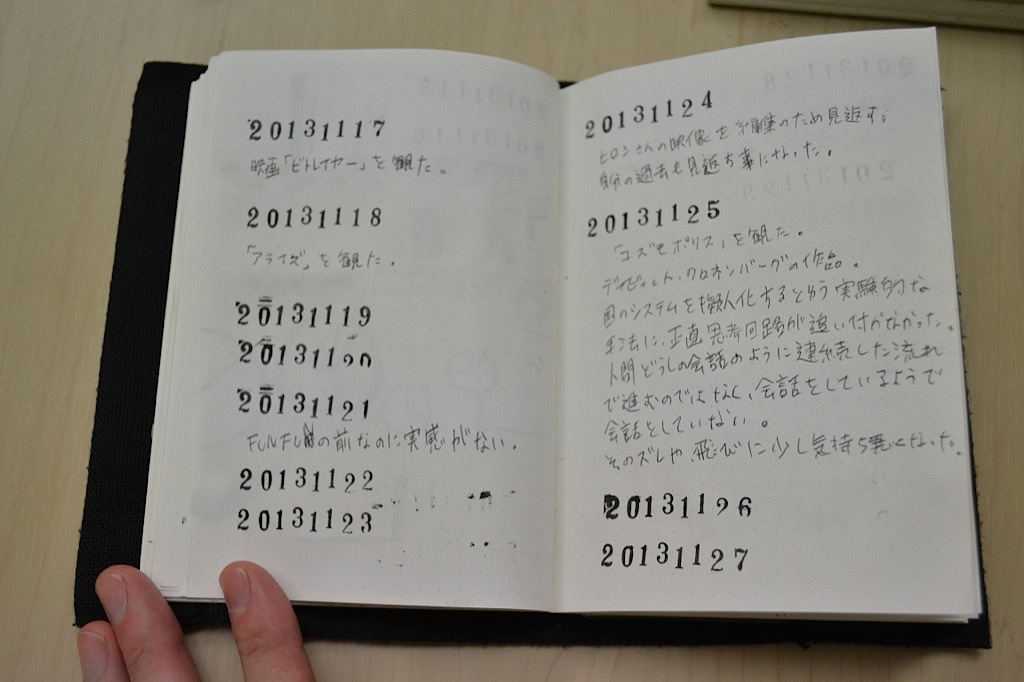 20131117
映画「ビトレイヤー」を観た。
20131118
「フライズ」を観た。
20131119
20131120
20131121
FULFULの前なのに実感がない。
20131122
20131123
20131124
ヒロシさんの映像を編集のため見返す。
自分の過去も見返す事になった。
20131125
「コズモポリス」を観た。
デイヴィッド・クロネンバーグの作品。
国のシステムを擬人化するという実験的な
手法に、正直思考回路が追い付かなかった。
人間どうしの会話のように連続した流れ
で進むのではなく、会話をしているようで
会話をしていない。
そのズレや飛びに少し気持ち悪くなった。
20131126
20131127